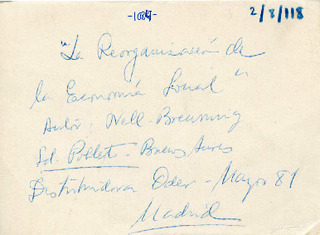 -1084-
2/8/118
"La Reorganización de
la Economía Social"
Autor: Nell-Breuning
Ed. Poblet - Buenos Aires
Distribuidora Oder - Mayo 81
Madrid